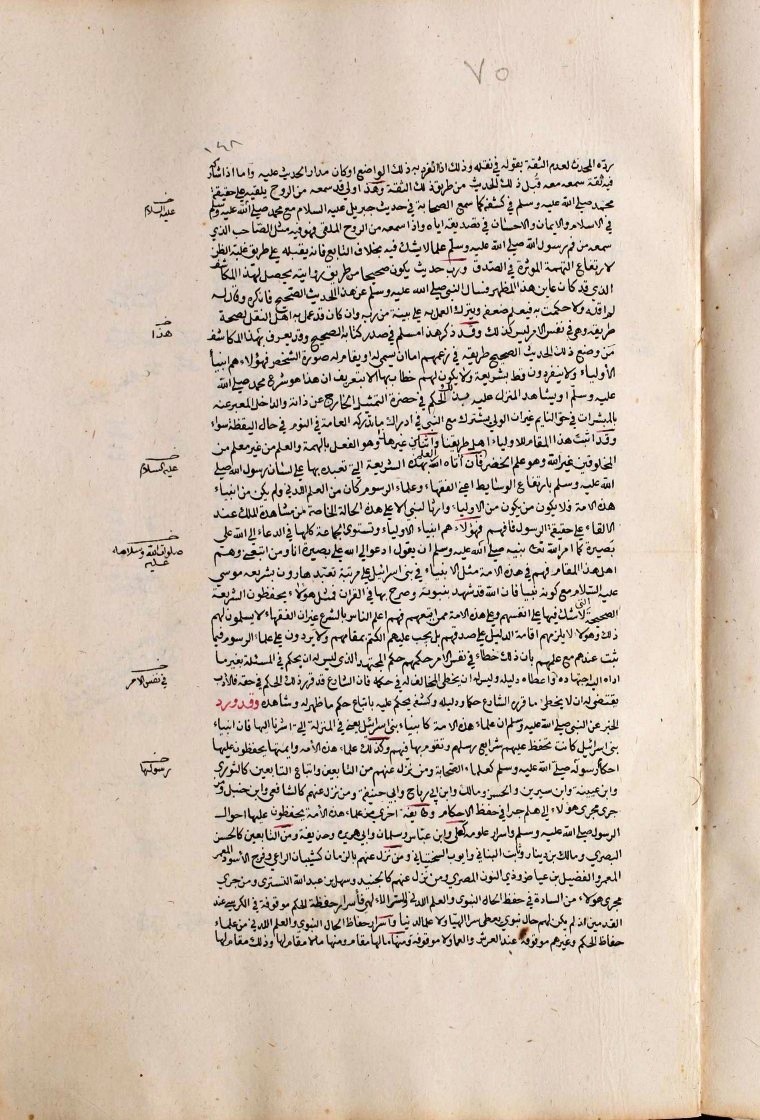 ٧٥
١٤٨
ردّه المحدث لعدم الثقة بقوله في نقله وذلك اذا انفرد به ذلك الواضع او كان مدار الحديث عليه واما اذا شاركه
فيه ثقة سمعه معه قُبل ذلك الحديث من طريق ذلك الثقة وهذا ولي قد سمعه من الروح يلقيه على حقيقة
محمد صلى الله عليه وسلم في كشفه كما سمع الصحابة في حديث جبريل عليه السلام مع محمد صلى الله عليه وسلم
في الاسلام والايمان والاحسان في تصديقه اياه واذا سمعه من الروح الملقي فهو فيه مثل الصاحب الذي
سمعه من فم رسول الله صلى الله عليه وسلم علما لا يشك فيه بخلاف التابع فانه يقبله على طريق غلبة الظن
لارتفاع التهمة المؤثرة في الصدق ورب حديث يكون صحيحا من طريق رواته يحصل لهذا المكاشف
الذي قد كان عاين هذا المظهر فسال النبي صلى الله عليه وسلم عن هذا الحديث الصحيح فانكره وقال له
لم اقله ولا حكمت به فيعلم ضعفه ويترك العمل به على بينة من ربه وان كان قد عمل به اهل النقل لصحة
طريقه وهو في نفس الامر ليس كذلك وقد ذكر هذا مسلم في صدر كتابه الصحيح وقد يعرف بهذا المكاشف
من وضع ذلك الحديث الصحيح طريقه في زعمهم اما ان يسمى له او يقام له صورة الشخص فهؤلاء هم انبيا
الأولياء ولا ينفردون قط بشريعة ولا يكون لهم خطاب بها الا بتعريف ان هذا هو شرع محمد صلى الله
عليه وسلم او يشاهد المنزل عليه بذلك الحكم في حضرة التمثل الخارج عن ذاته والداخل المعبر عنه
بالمبشرات في حق النايم غير ان الولي يشترك مع النبي في ادراك ما تدركه العامة في النوم في حال اليقظة سواء
وقد اثبت هذا المقام للاولياء اهل طريقنا واتيان غير هذا وهو الفعل بالهمة والعلم من غير معلم من
المخلوقين غير الله وهو علم الخضر فان آتاه الله العلم بهذه الشريعة التي تعبده بها على لسان رسول الله صلى
الله عليه وسلم بارتفاع الوسايط اعني الفقهاء وعلماء الرسوم كان من العلم اللدني ولم يكن من انبياء
هذه الامة فلا يكون من يكون من الاولياء وارثا لنبي الا على هذه الحالة الخاصة من مشاهدة الملك عند
الالقاء على حقيقة الرسول فافهم فهؤلاء هم انبياء الاولياء وتستوي الجماعة كلها في الدعاء الى الله على
بصيرة كما امر الله تعالى نبيه صلى الله عليه وسلم ان يقول ادعوا الى الله على بصيرة انا ومن اتبعني وهم
اهل هذا المقام فهم في هذه الامة مثل الانبياء في بني اسرائيل على مرتبة تعبد هارون بشريعة موسى
عليه السلام مع كونه نبيا فان الله قد شهد بنبوته وصرح بها في القران فمثل هؤلاء يحفظون الشريعة
الصحيحة التي لا شك فيها على انفسهم وعلى هذه الامة ممن اتبعهم فهم اعلم الناس بالشرع غير ان الفقهاء لا يسلمون لهم
ذلك وهؤلاء لا يلزمهم اقامة الدليل على صدقهم بل يجب عليهم الكتم بمقامهم ولا يردون على علماء الرسوم فيما
ثبت عندهم مع علمهم بان ذلك خطاء في نفس الامر حكمهم حكم المجتهد الذي ليس له ان يحكم في المسئلة بغير ما
اداه اليه اجتهاده واعطاه دليله وليس له ان يخطي المخالف له في حكمه فان الشارع قد قرر ذلك الحكم في حقه فالادب
يقتضي له ان لا يخطي ما قرره الشارع حكما ودليله وكشفه يحكم عليه باتباع حكم ما ظهر له وشاهده وقد ورد
الخبر عن النبي صلى الله عليه وسلم ان علماء هذه الامة كانبياء بني اسرائيل يعني في المنزلة التي اشرنا اليها فان انبياء
بني اسرائيل كانت تحفظ عليهم شرايع رسلهم وتقوم بها فيهم وكذلك علماء هذه الامة وايمتها يحفظون عليها
احكام رسوله صلى الله عليه وسلم كعلماء الصحابة ومن نزل عنهم من التابعين واتباع التابعين كالثوري
وابن عيينة وابن سيرين والحسن ومالك وابن ابي رباح وابي حنيفة ومن نزل عنهم كالشافعي وابن حنبل ومن
جرى مجرى هؤلاء الى هلم جرا في حفظ الاحكام وطايفة اخرى من علماء هذه الامة يحفظون عليها احوال
الرسول صلى الله عليه وسلم واسرار علومه كعلي وابن عباس وسلمان وابي هريرة وحذيفة ومن التابعين كالحسن
البصري ومالك بن دينار وثابت البناني وايوب السختياني ومن نزل عنهم بالزمان كشيبان الراعي وفرج الاسود المعمر
المعمر والفضيل بن عياض وذي النون المصري ومن نزل عنهم كالجنيد وسهل بن عبد الله التستري ومن جرى
مجرى هؤلاء من السادة في حفظ الحال النبوي والعلم اللدني والسر الالهي فأسرار حفظة الحكم موقوفة في الكرسي عند
القدمين اذ لم يكن لهم حال نبوي يعطي سرا الهيا ولا علما لدنيا واسرار حفاظ الحال النبوي والعلم اللدني من علماء
حفاظ الحكم وغيرهم موقوفة عند العرش والعما ولا موقوفة ومنها ما لها مقام ومنها ما لا مقام لها وذلك مقام لها
عليه السلام
هذا
عليه السلام
صلوات الله وسلامه
عليه
في نفس الامر
رسولها